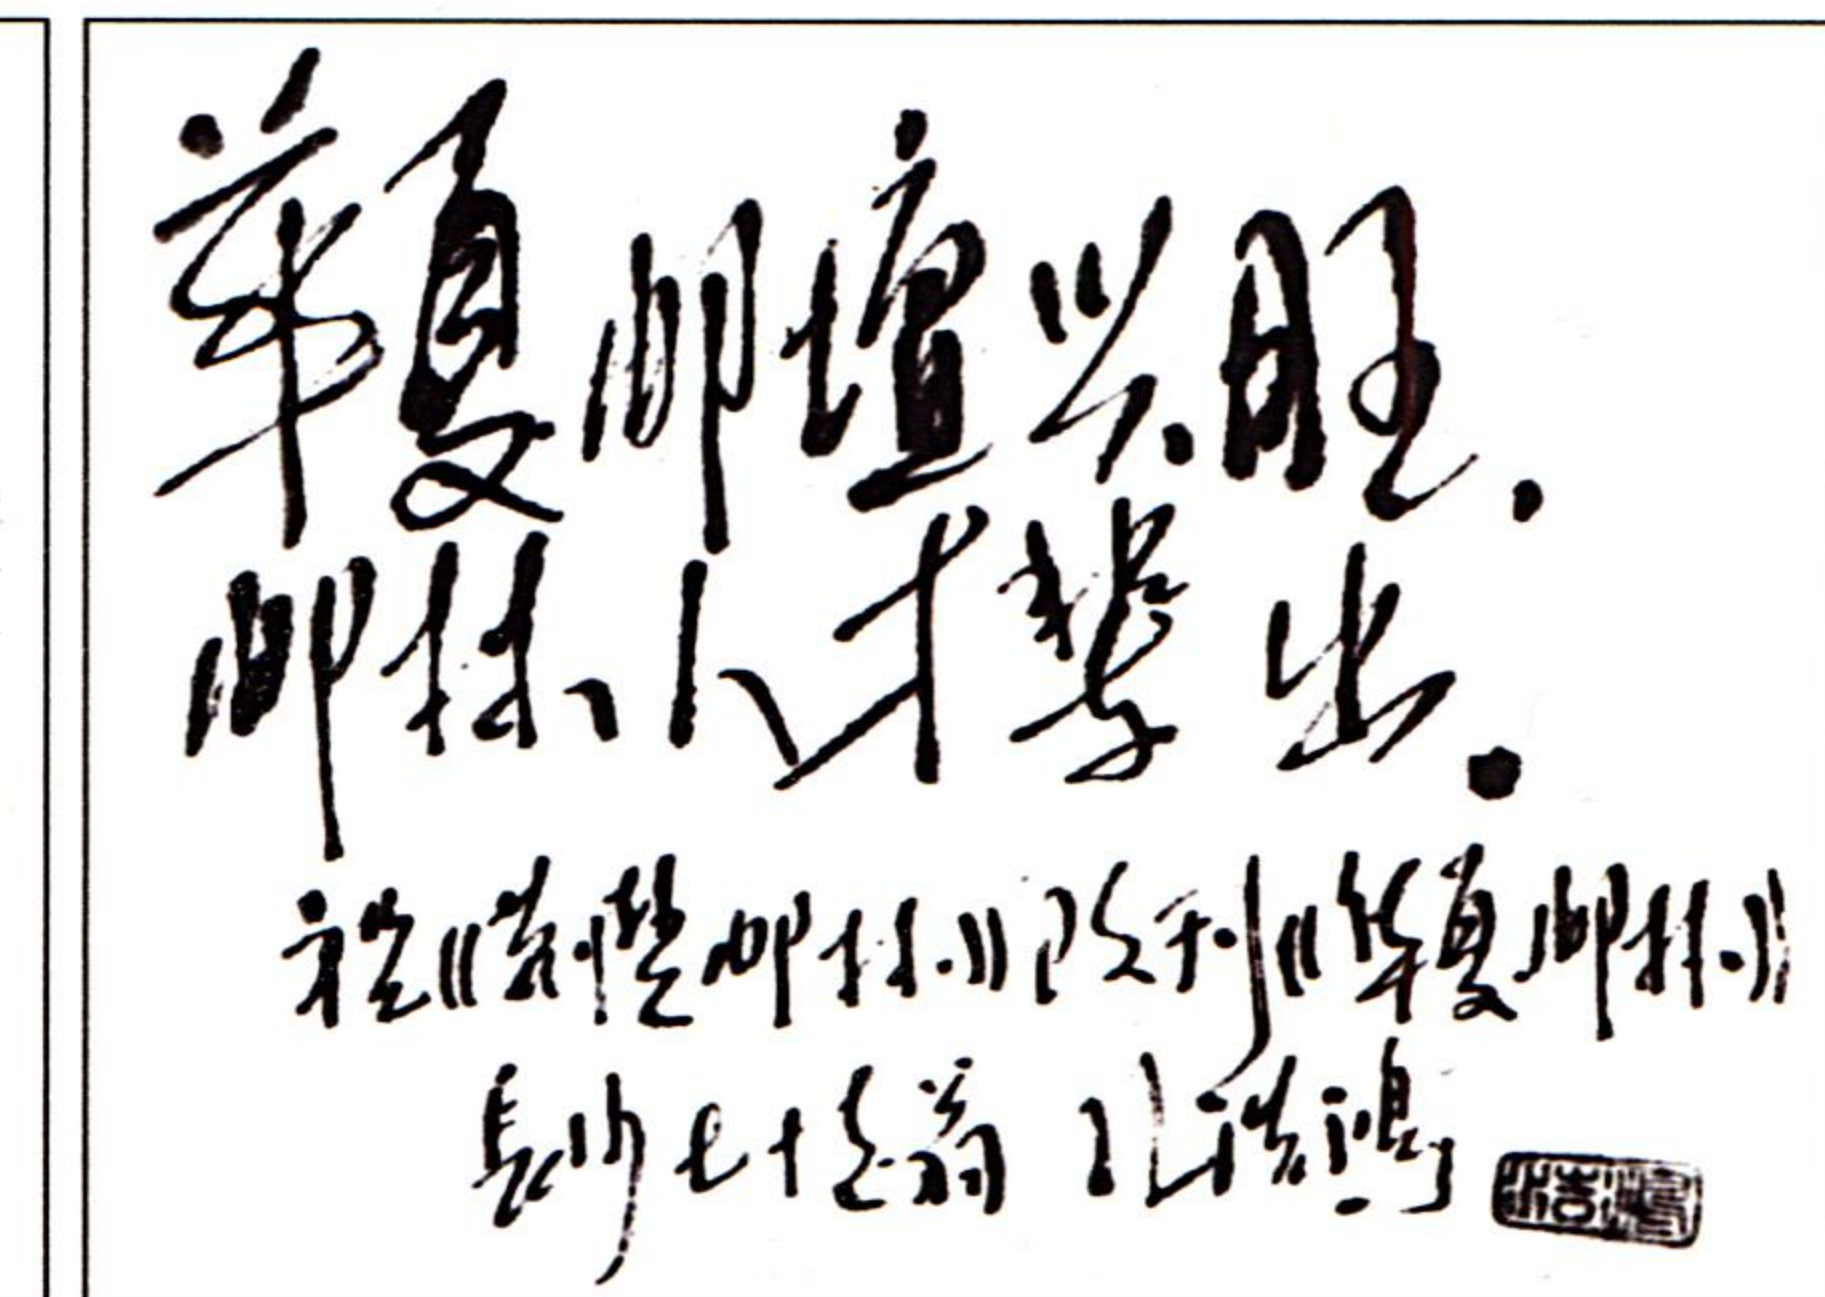 華夏邮壇兴旺.
邮林人才輩出.
祝《荆楚邮林》改刊《华夏邮林》
長沙七十老翁 孔浩鸿
浩鸿